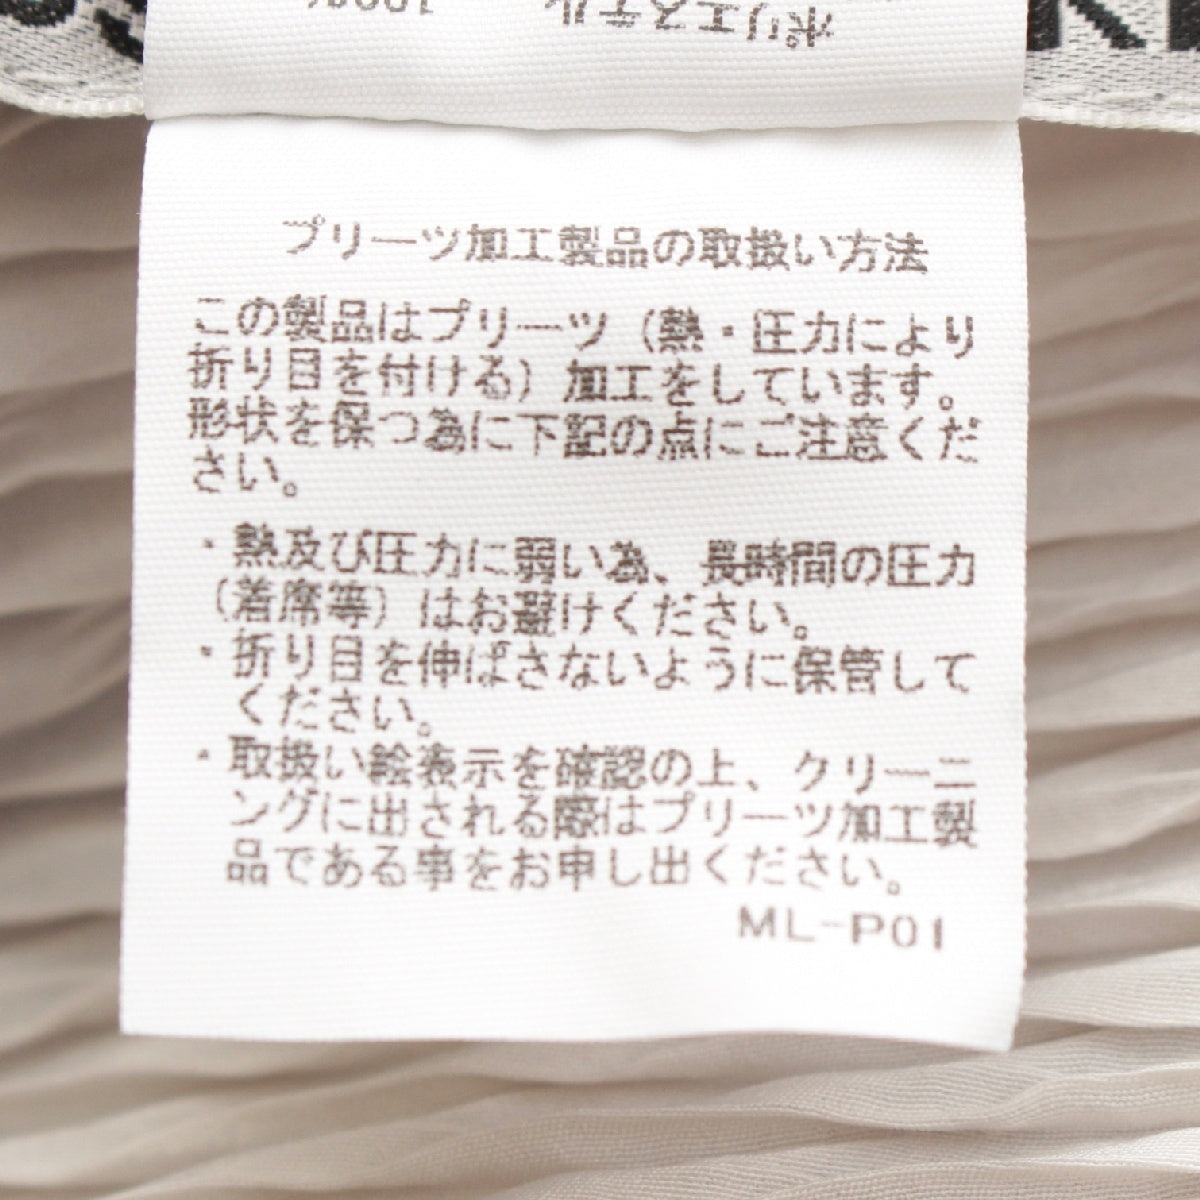 ポリエステル 100%
プリーツ加工製品の取扱い方法
この製品はプリーツ（熱・圧力により
折り目を付ける）加工をしています。
形状を保つ為に下記の点にご注意くだ
さい。
・熱及び圧力に弱い為、長時間の圧力
（着席等）はお避けください。
・折り目を伸ばさないように保管して
ください。
・取扱い絵表示を確認の上、クリーニ
ングに出される際はプリーツ加工製
品である事をお申し出ください。
ML-P01